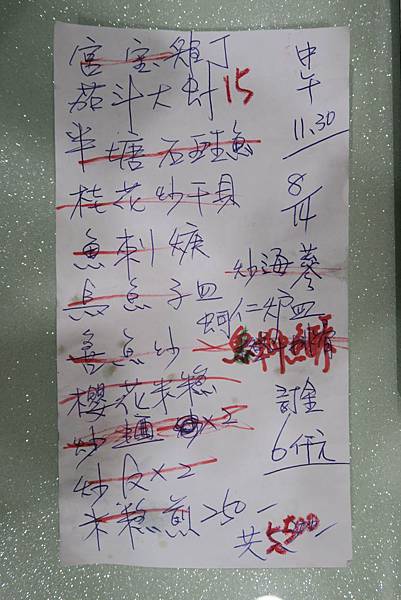 宮宝雞丁
茄汁大虾 15
半塘石斑魚
桂花炒干貝
魚刺羹
烏魚子四
善魚炒
櫻花米糕
炒麵 x2
炒
x2
米糕煎 250-
中午
11.30
8/14
炒海蔘
蚵仁炉四
訂金
6仟元
共5500-